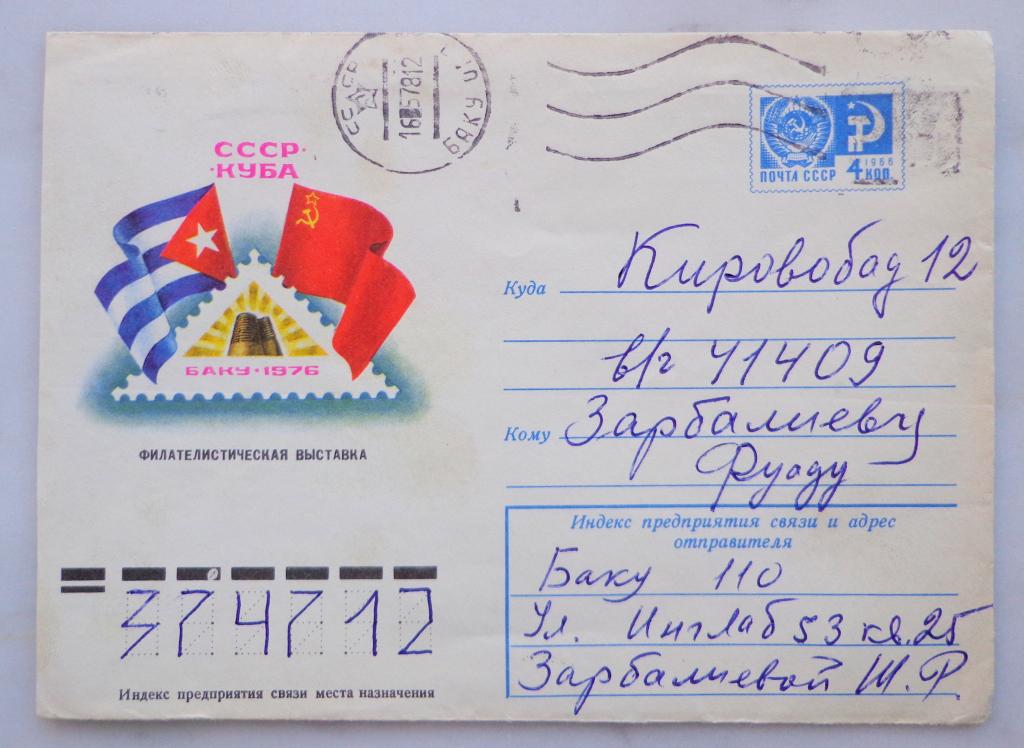 СССР
16 5 78 12
БАКУ
ПОЧТА СССР
1966
4 КОП.
СССР·
·КУБА
БАКУ·1976
ФИЛАТЕЛИСТИЧЕСКАЯ ВЫСТАВКА
Куда Кировобад 12
в/г 41409
Кому Зарбалиеву
Фуаду
Индекс предприятия связи и адрес
отправителя
Баку 110
Ул. Инглаб 53 кв.25
Зарбалиевой Ш. Ф
374712
Индекс предприятия связи места назначения